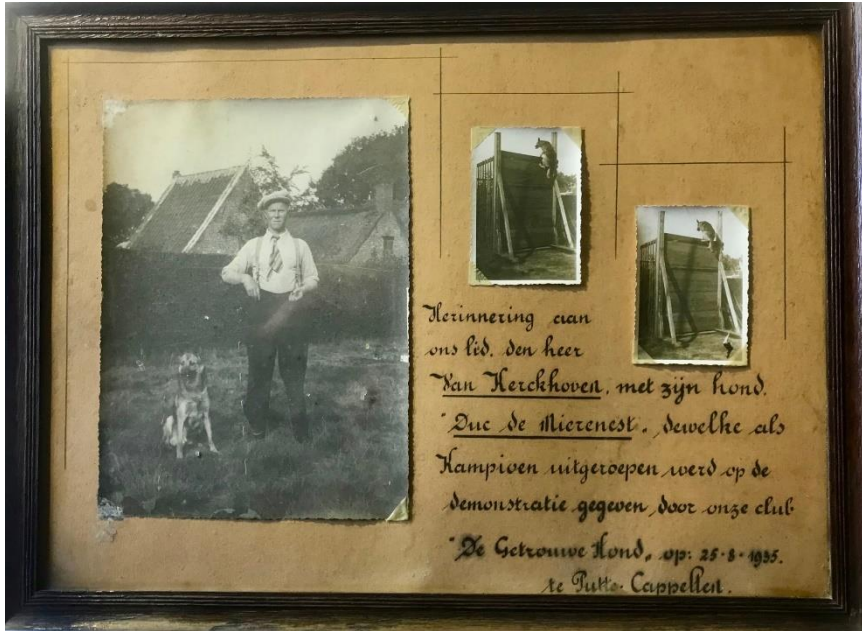 Herinnering aan
ons lid. den heer
Van Herckhoven, met zijn hond.
"Duc de Mierenest„ dewelke als
Kampioen uitgeroepen werd op de
demonstratie gegeven door onze club
"De Getrouwe Hond„ op: 25-8-1935.
te Putte-Cappellen.